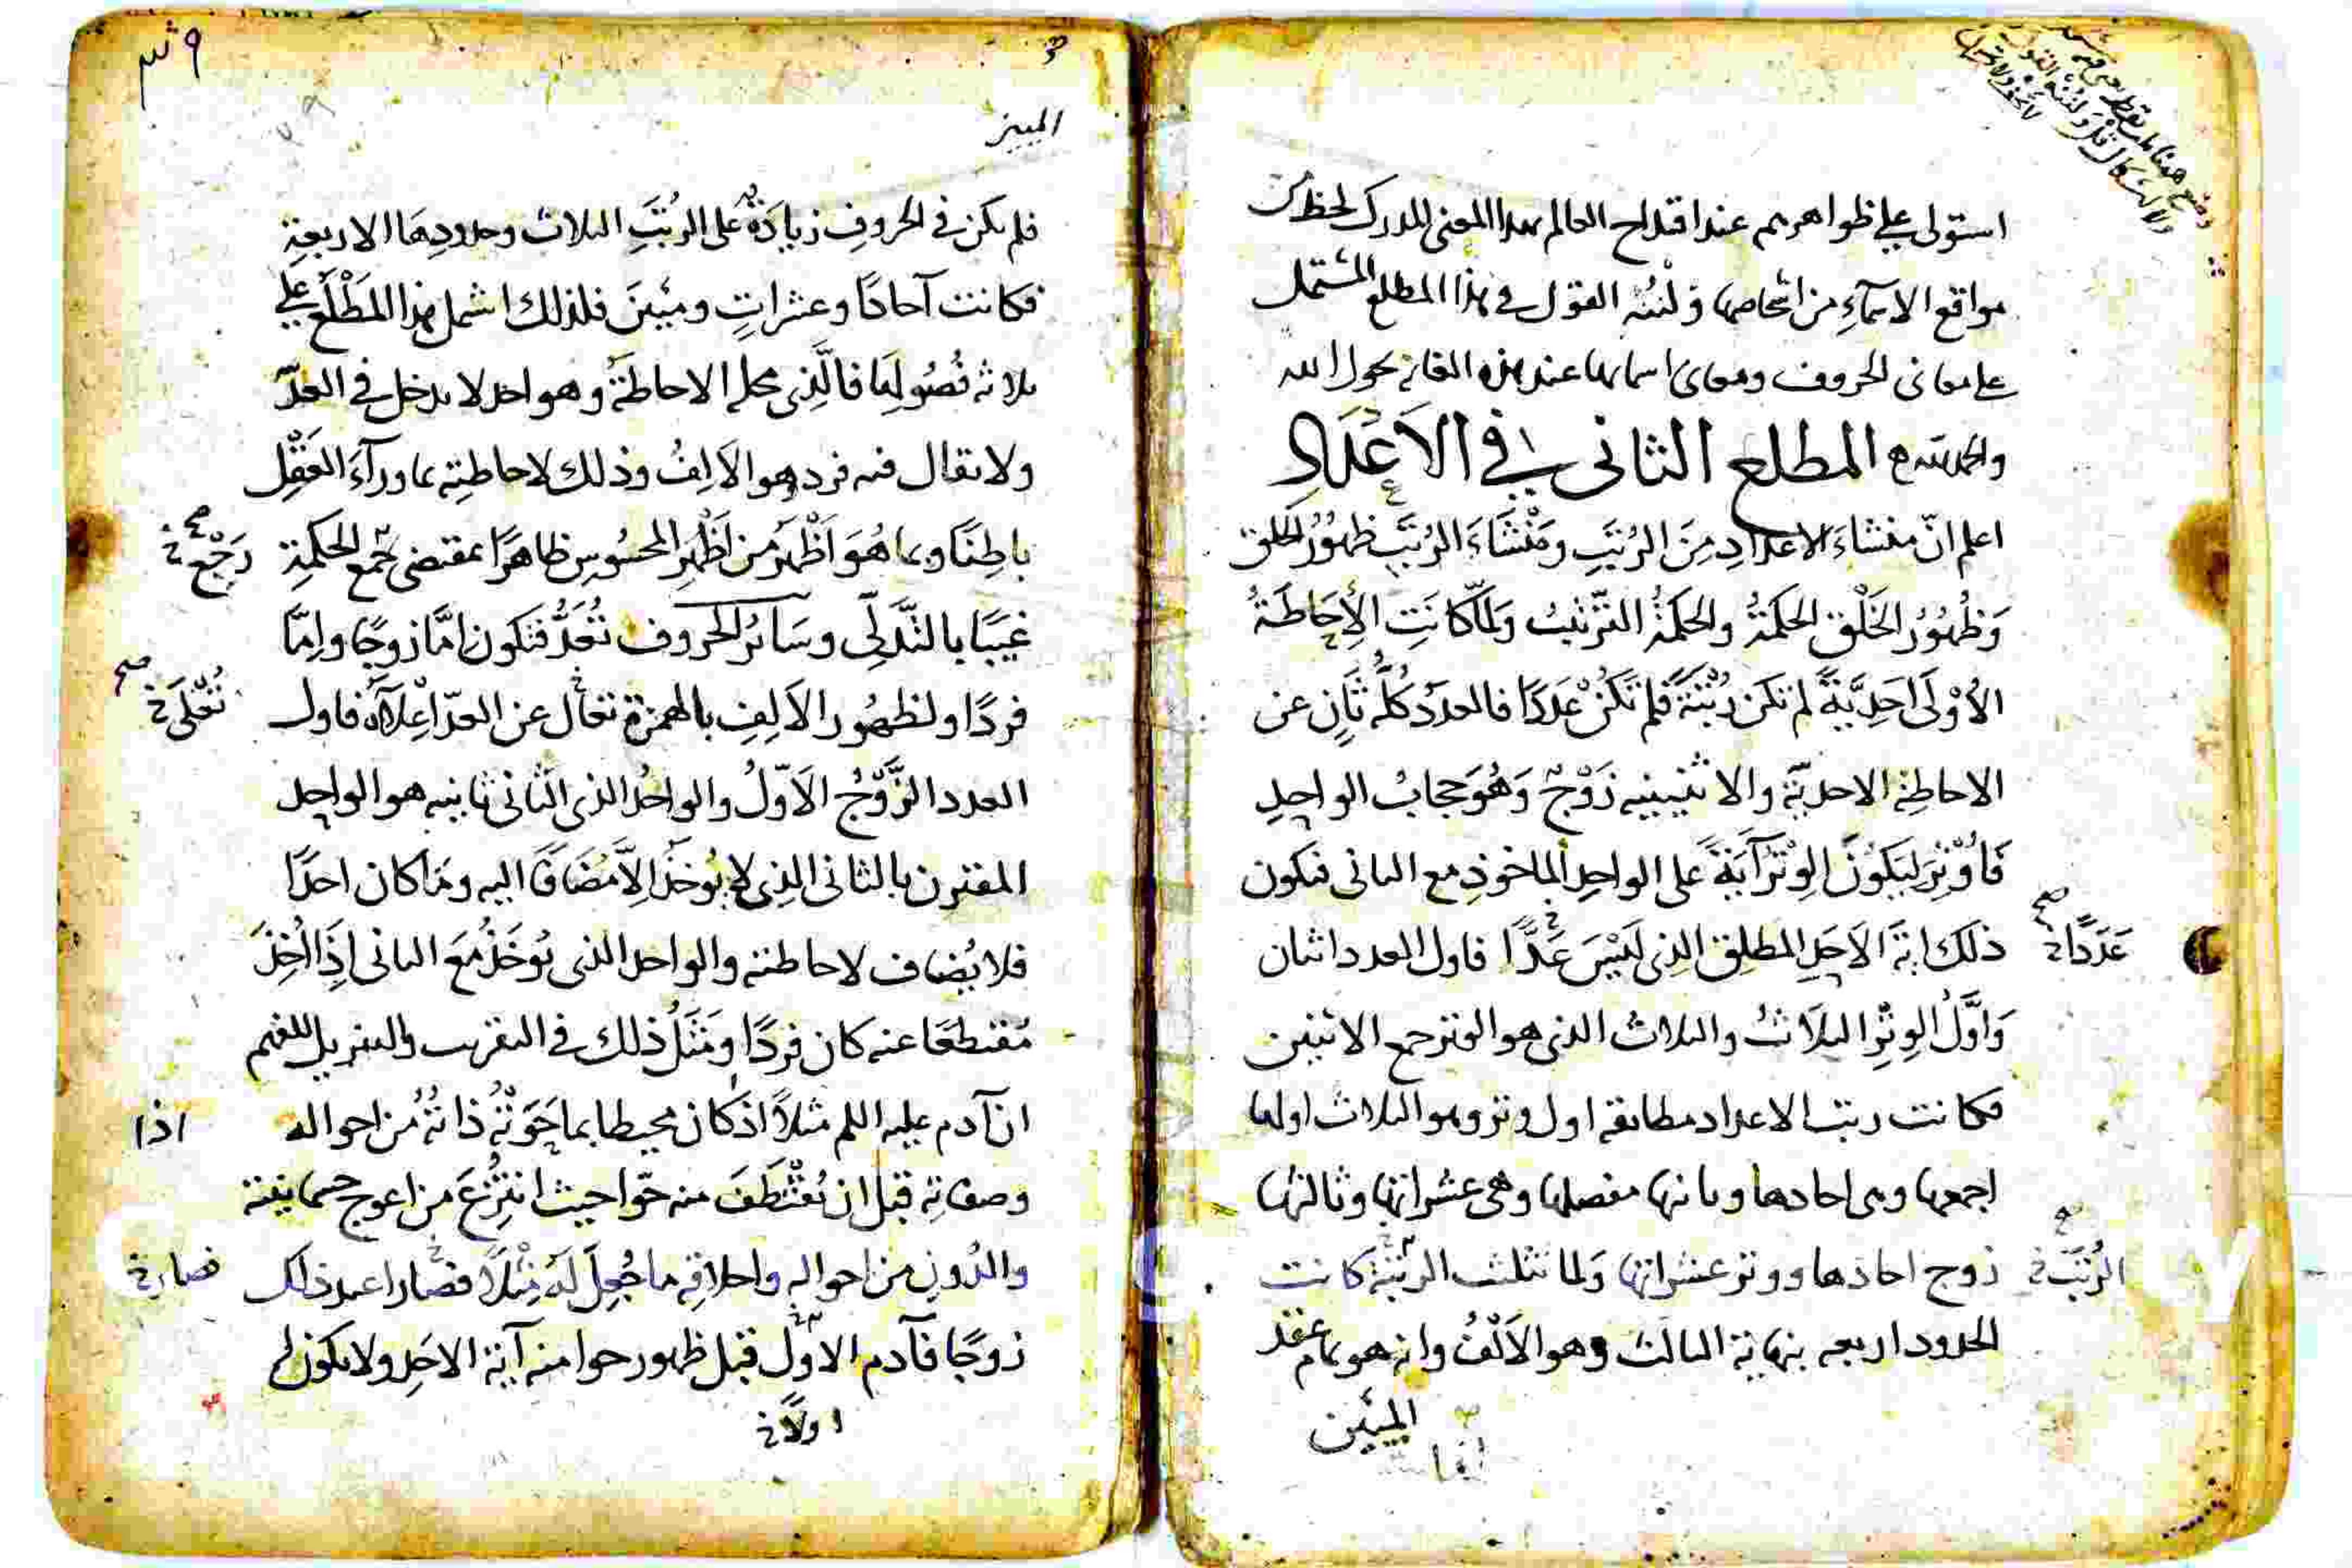 استولى على ظواهرهم عند اقتداح العالم بهذا المعنى المدرك لحظا من
مواقع الاسماء من اشخاصها ولننه القول في هذا المطلع المشتمل
على معانى الحروف ومعانى اسمائها عند هذه الغاية بحول الله
والحمد لله المطلع الثانى في الاَعْدَادِ
اعلم انّ منشاءَ الاعدادِ مِنَ الرُتَبِ وَمَنْشَاءَ الرُتَبِ ظهُورُ الخلق
وَظُهُورُ الخَلْقِ الحكمَةُ والحكمَةُ التَّرْتيبُ وَلمّا كانَتِ الاِحَاطَةُ
الاُوْلَى اَحَدِيَّةً لم تكن رُتْبَةً فلم تَكُنْ عَدَدًا فالعددُ كلّه ثَانٍ عن
الاحاطةِ الاحديّة والاثنينيه زَوْجٌ وَهُوَ حجابُ الواحِدِ
فَاُوْتِرَ ليَكُوْنَ الوِتْرُ آيَةً على الواحِدِ الماخوذِ مع الثانى فتكون
ذلك ايَة الاَحَدِ المطلِق الذِى لَيْسَ عَدًّا فاول العدد اثنان
عَدَدًا خ صح
وَاوَّلُ الوِتْرِ الثلاَثُ والثلاث الذى هو الوتر جمع الاثنين
فكانت رتب الاعداد مطابقة اول وتر وهو الثلاث اولها
اجمعها وهى احادها وثانيها مفصلها وهى عشراتها وثالثها
زوج احادها ووتر عشراتها وَلما تثلث الرتبَة كانت
الرُتَبُ خ صح
الحدود اربعه بنهاية الثالث وهو الاَلْفُ وانه هو تمام عقد
المئين
المئين
فلم يكن في الحروفِ زيادَةٌ على الرُتَبِ الثلاث وحدودِهَا الاربعةِ
فكانت آحادًا وعشراتٍ ومئينَ فلذلك اشتمل هذا المَطْلَعُ على
ثلاثه فُصُولٍ اَمَا فالَّذِى محله الاحاطةُ وهو احد لا يدخل في العدّ
ولا يقال فيه فرد هو الاَلِفُ وذلك لاحاطتِه بما ورآءَ العَقْلِ
باطِنًا وبما هُوَ اَظْهَرُ من اَظْهَرِ المحسُوسِ ظاهرًا بمقتضى جمع الحكمةِ
رَجْعِ خ صح
غيبًا بالتَّدَلِّى وسَائرُ الحروف تُعَدُّ فتكون امَّا زوجًا واِمَّا
فردًا ولظهُور الاَلِفِ بالهمزة تعال عن العدّ اعْلاَهُ فاول
تُعْلَى خ صح
العدد الزَّوْجُ الاَوّلُ والواحدُ الذى الثانى ثانيه هو الواحِد
المقترن بالثانى الذِى لا يُوخَذُ اِلاَّ مُضَافًا اليه ومَا كان احدًا
فلا يُضاف لاحاطته والواحد الذى يُوخَذُ مَعَ الثانى اِذَا اُخِذَ
مُقتطعًا عنه كان فردًا ومَثَلُ ذلك في التقريب والتنزيل للفهم
ان آدم عليه السلم مثلاً اذ كان محيطا بما حَوَتْهُ ذاتُهُ من احواله
اذا
وصفاتِه قبل ان تُقْتَطَفَ منه حوّا حيث انتُزِعَ من اعوج جسمانيته
والدُونِ من احوالِه واخلاقِه ما جُعِلَ لَهُ مِثْلاً فصَارا عند ذلك
فصار خ
زوجًا فآدم الاول قبل ظهور حوا منه آيَة الاحَدِ ولا يكون لم
اولاً خ